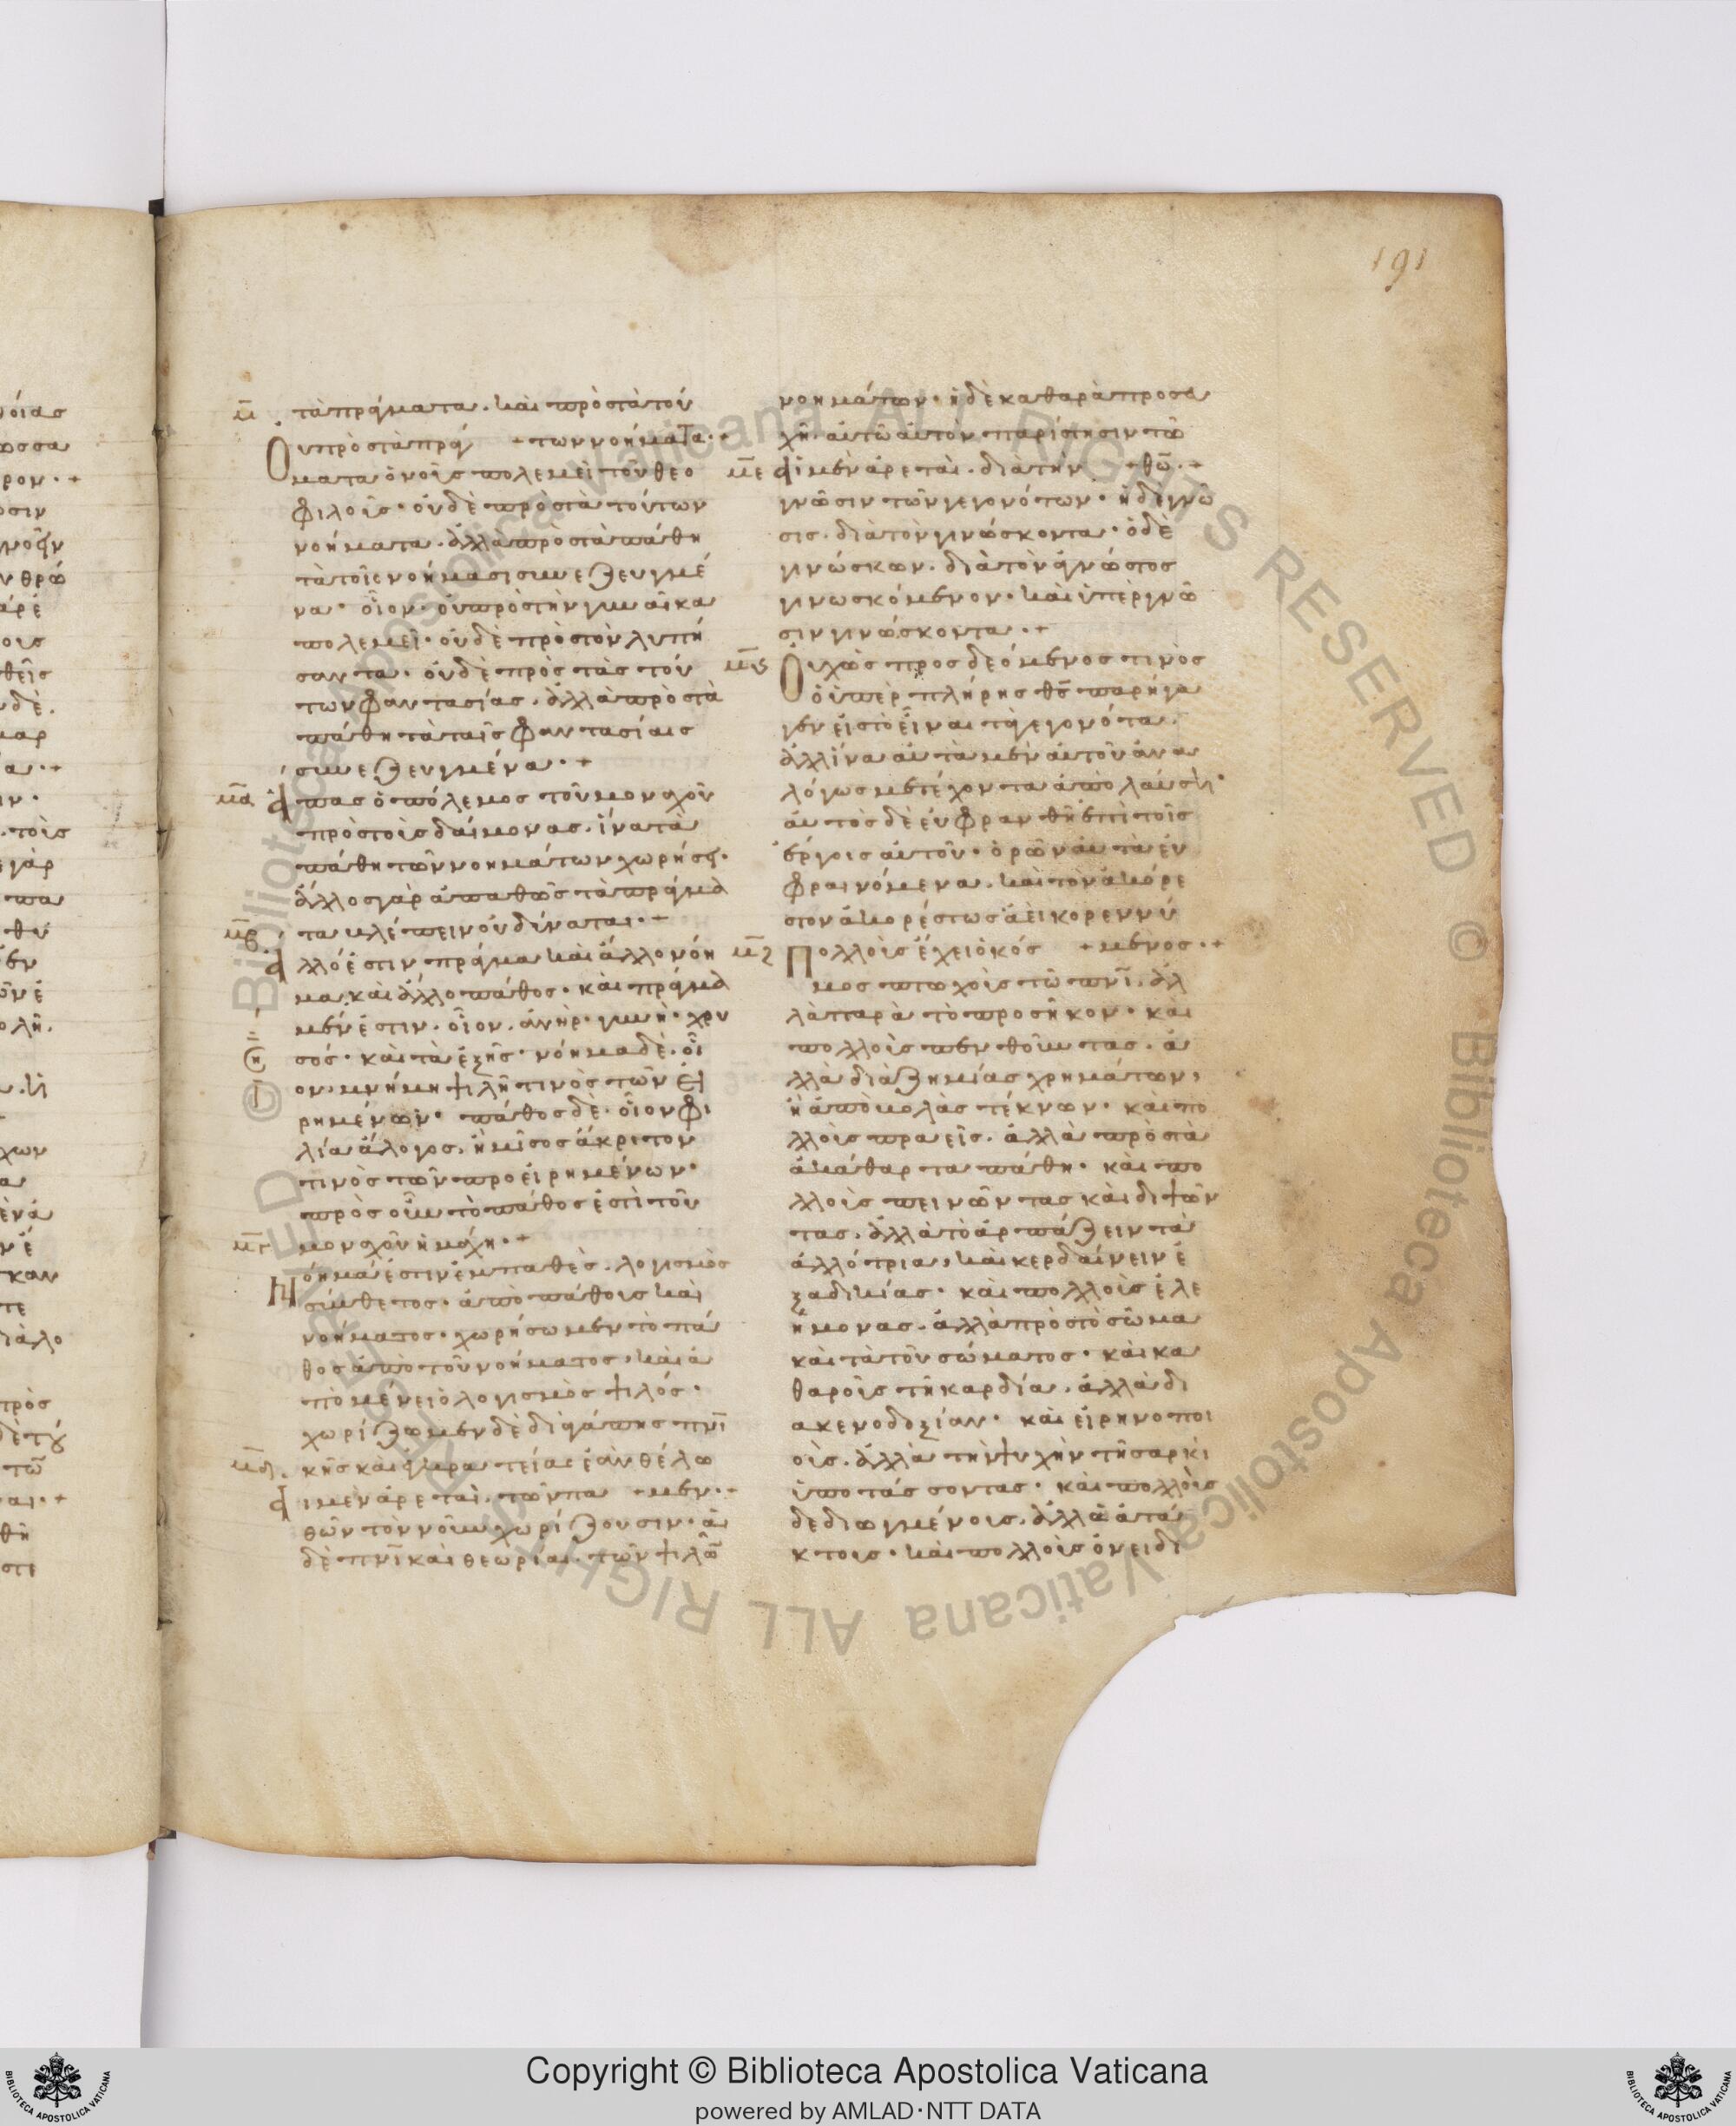 191
μ̅ τὰ πράγματα. καὶ πρὸς τὰ τού
Ου πρὸς τὰ πράγ +των νοήματα·+
ματα ὁ νοῦς πολεμεῖ τοῦ θεο
φιλοῦς· οὐδὲ πρὸς τὰ τούτων
νοήματα. ἀλλὰ πρὸς τὰ πάθη
τὰ τοῖς νοήμασι συνεζευγμέ
να· οἷον· οὐ πρὸς τὴν γυναῖκα
πολεμεῖ· οὐδὲ πρὸς τὸν λυπή
σαντα· οὐδὲ πρὸς τὰς τού
των φαντασίας. ἀλλὰ πρὸς τὰ
πάθη τὰ ταῖς φαντασίαις
συνεζευγμένα·+
μ̅α̅ ἅπας ὁ πόλεμος τοῦ μοναχοῦ
πρὸς τοὺς δαίμονας. ἵνα τὰ
πάθη τῶν νοημάτων χωρήσῃ·
ἄλλος γὰρ ἀπαθῶς τὰ πράγμα
μ̅β̅ τα βλέπειν οὐ δύναται·+
ἄλλό ἐστιν πρᾶγμα καὶ ἄλλο νόη
μα, καὶ ἄλλο πάθος· καὶ πρᾶγμα
μέν ἐστιν. οἷον. ἀνὴρ· γυνὴ· χρυ
σός· καὶ τὰ ἑξῆς· νόημα δὲ. οἷ
ον. μνήμη ψιλῆ τινὸς τῶν εἰ
ρημένων· πάθος δὲ· οἷον φι
λία ἄλογος. ἢ μῖσος ἄκριτον
τινὸς τῶν προειρημένων·
πρὸς οὖν τὸ πάθος ἐστὶ τοῦ
μ̅γ̅ μοναχοῦ ἡ μάχη·+
Νόημά ἐστιν ἐμπαθὲς. λογισμὸς
σύνθετος· ἀπὸ πάθους καὶ
νοήματος· χωρήσωμεν τὸ πά
θος ἀπὸ τοῦ νοήματος, καὶ ἀ
πομένει ὁ λογισμὸς ψιλός·
χωρίζωμεν δὲ δι' ἀγάπης πν̅ι
μ̅δ̅ κῆς καὶ ἐγκρατείας ἐὰν θέλω
αἱ μὲν ἀρεταὶ. τῶν πα +μεν·+
θῶν τὸν νοῦν χωρίζουσιν· αἱ
δὲ πν̅ι καὶ θεωρίαι. τῶν ψιλῶ
νοημάτων· ἡ δὲ καθαρὰ προσευ
χή. αὐτῶ αὐτὸν παρίστησιν τῶ
μ̅ε̅ αἱ μὲν ἀρεταὶ. διὰ τὴν +θω̅·+
γνῶσιν τῶν γεγονότων· ἡ δὲ γνῶ
σις. διὰ τὸν γινώσκοντα· ὁ δὲ
γινώσκων. διὰ τὸν ἀγνώστως
γινωσκόμενον· καὶ ὑπὲρ γνῶ
σιν γινώσκοντα·+
μ̅ϛ̅ Οὐχ ὡς προσδεόμενος τινὸς
ὁ ὑπὲρ πλήρης θ̅ς̅ παρήγα
γεν εἰς τὸ εἶναι τὰ γεγονότα.
ἀλλ' ἵνα αὐτὰ μὲν αὐτοῦ ἀνα
λόγως μετέχοντα ἀπολαύσῃ·
αὐτὸς δὲ εὐφρανθῆ ἐπὶ τοῖς
ἔργοις αὐτοῦ· ὁρῶν αὐτὰ εὐ
φραινόμενα. καὶ τὸν ἀκόρε
στον ἀκορέστως ἀεὶ κορεννύ
μ̅ζ̅ Πολλοὺς ἔχει ὁ κόσ +μενος·+
μος πτωχοὺς τῶ πν̅ι. ἀλ
λὰ παρὰ τὸ προσῆκον· καὶ
πολλοὺς πενθοῦντας. ἀ
λλὰ διὰ ζημίας χρημάτων,
ἢ ἀποβολὰς τέκνων· καὶ πο
λλοὺς πραεῖς. ἀλλὰ πρὸς τὰ
ἀκάθαρτα πάθη· καὶ πο
λλοὺς πεινῶντας καὶ διψῶν
τας. ἀλλὰ τὸ ἁρπάζειν τὰ
ἀλλότρια, καὶ κερδαίνειν ἐ
ξ ἀδικίας· καὶ πολλοὺς ἐλε
ήμονας. ἀλλὰ πρὸς τὸ σῶμα
καὶ τὰ τοῦ σώματος· καὶ κα
θαροὺς τῆ καρδία. ἀλλὰ δι
ακενοδοξίαν· καὶ εἰρηνοποι
οὺς. ἀλλὰ τὴν ψυχὴν τῆ σαρκὶ
ὑποτάσσοντας· καὶ πολλοὺς
δεδιωγμένους. ἀλλὰ ἀτά
κτους· καὶ πολλοὺς ὀνειδι
Copyright © Biblioteca Apostolica Vaticana
powered by AMLAD·NTT DATA